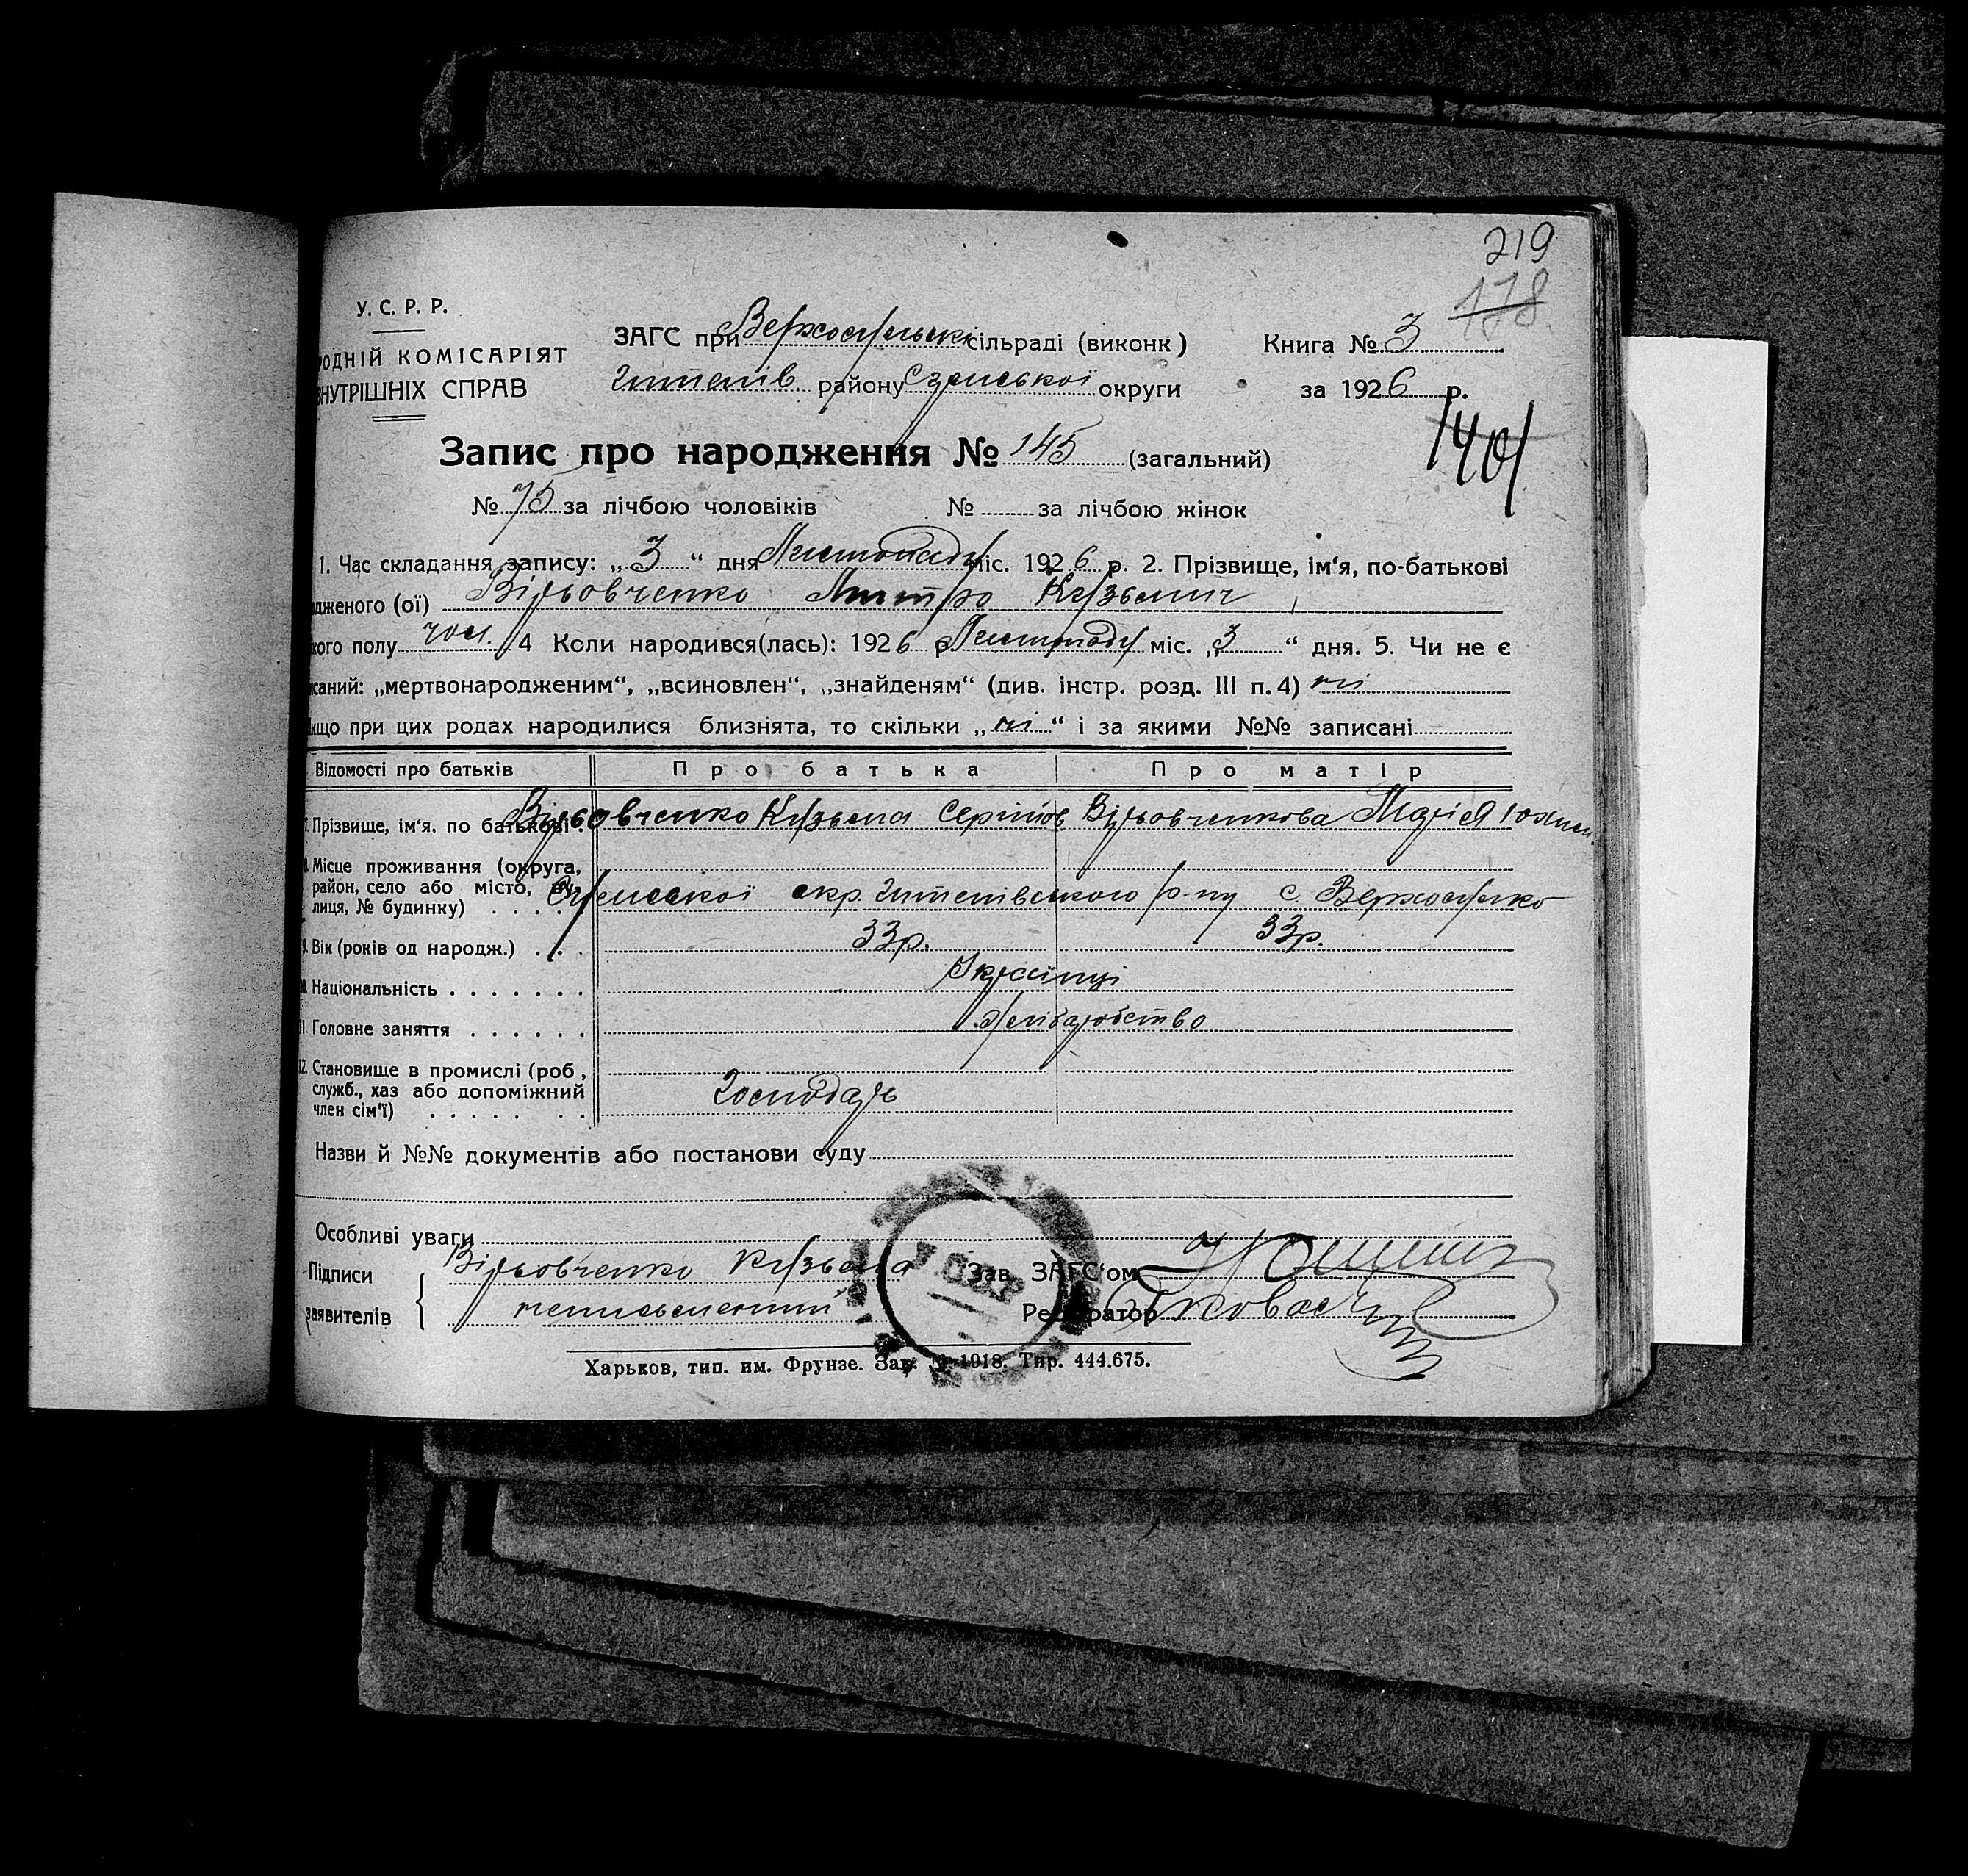 219
178
У. С. Р. Р.
РОДНІЙ КОМІСАРІЯТ
ВНУТРІШНІХ СПРАВ
ЗАГС при сільраді (виконк)
Книга № 3
району Сумської округи
за 1926 р.
1401
Запис про народження № 145 (загальний)
№ 75 за лічбою чоловіків № за лічбою жінок
1. Час складання запису: „ 3 “ дня Листопаду міс. 1926 р. 2. Прізвище, ім‘я, по-батькові
дженого (ої) Дмитро Кузьмич
кого полу чол. 4 Коли народився(лась): 1926 р Листопаду міс. „ 3 “ дня. 5. Чи не є
исаний: „мертвонародженим“, „всиновлен“, „знайденям“ (див. інстр. розд. III п. 4) ні
кщо при цих родах народилися близнята, то скільки „ ні “ і за якими №№ записані
Відомості про батьків Про батька Про матір
7. Прізвище, ім‘я, по батькові. Кузьма Марія
8. Місце проживання (округа, район, село або місто, вулиця, № будинку) Сумської окр. р-ну с.
9. Вік (років од народж.) 33р. 33р.
10. Національність Українці
11. Головне заняття Хліборобство
12. Становище в промислі (роб, служб., хаз або допоміжний член сім‘ї) Господарь
Назви й №№ документів або постанови суду
Особливі уваги
Підписи Кузьма Зав. ЗАГС‘ом
заявителів неписьменний Реєстратор
Харьков, тип. им. Фрунзе. Зак. № 1918. Тир. 444.675.